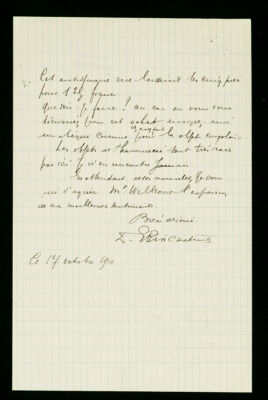 Cet antiquaire me laisserait les cinq pour
pour 125 francs
que dois-je faire ? au cas où vous vous
décideriez pour cet achat envoyez moi
un chèque comme pour les objets congolais
Les objets de pharmacie sont très rares
par ici. Je n'en rencontre jamais
En attendant vos nouvelles, je vous
prie d'agréer Mr Wellcome l'expression
de mes meilleurs sentiments.
Bien dévoué
Ce 17 octobre 1910